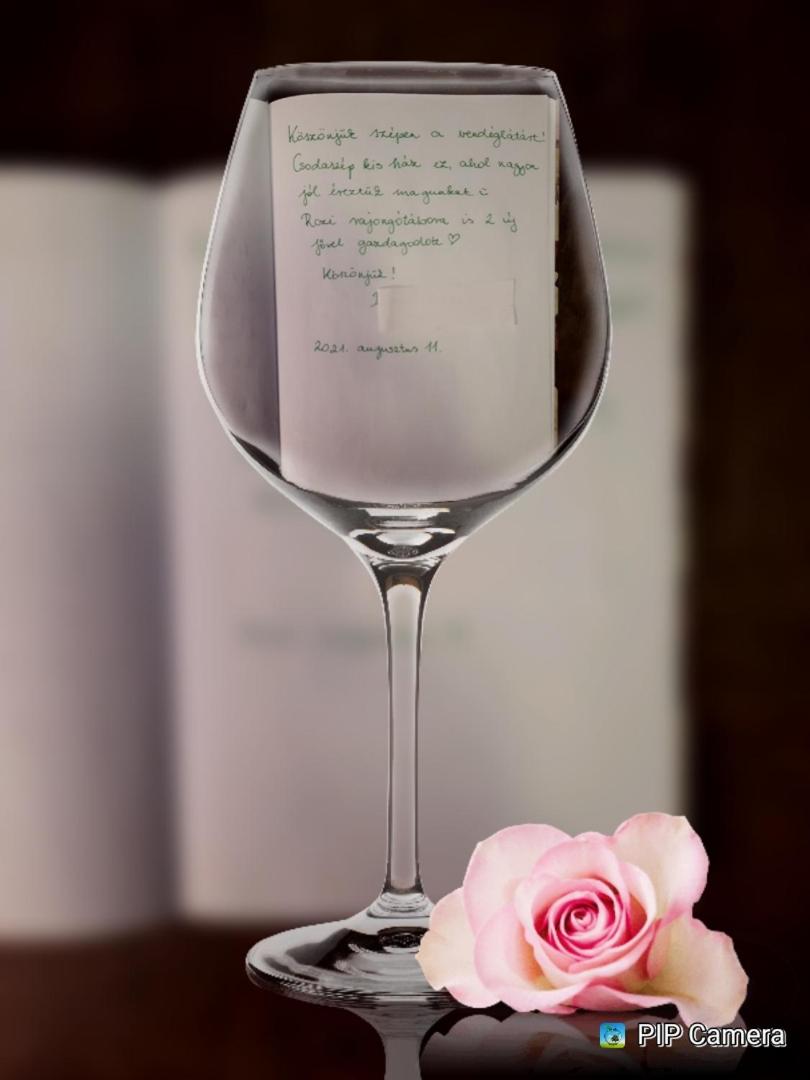 Köszönjük szépen a vendéglátást!
Csodaszép kis ház ez, ahol nagyon
jól éreztük magunkat :)
Rozi rajongótábora is 2 új
fővel gazdagodott ♡
Köszönjük!
2021. augusztus 11.
PIP Camera